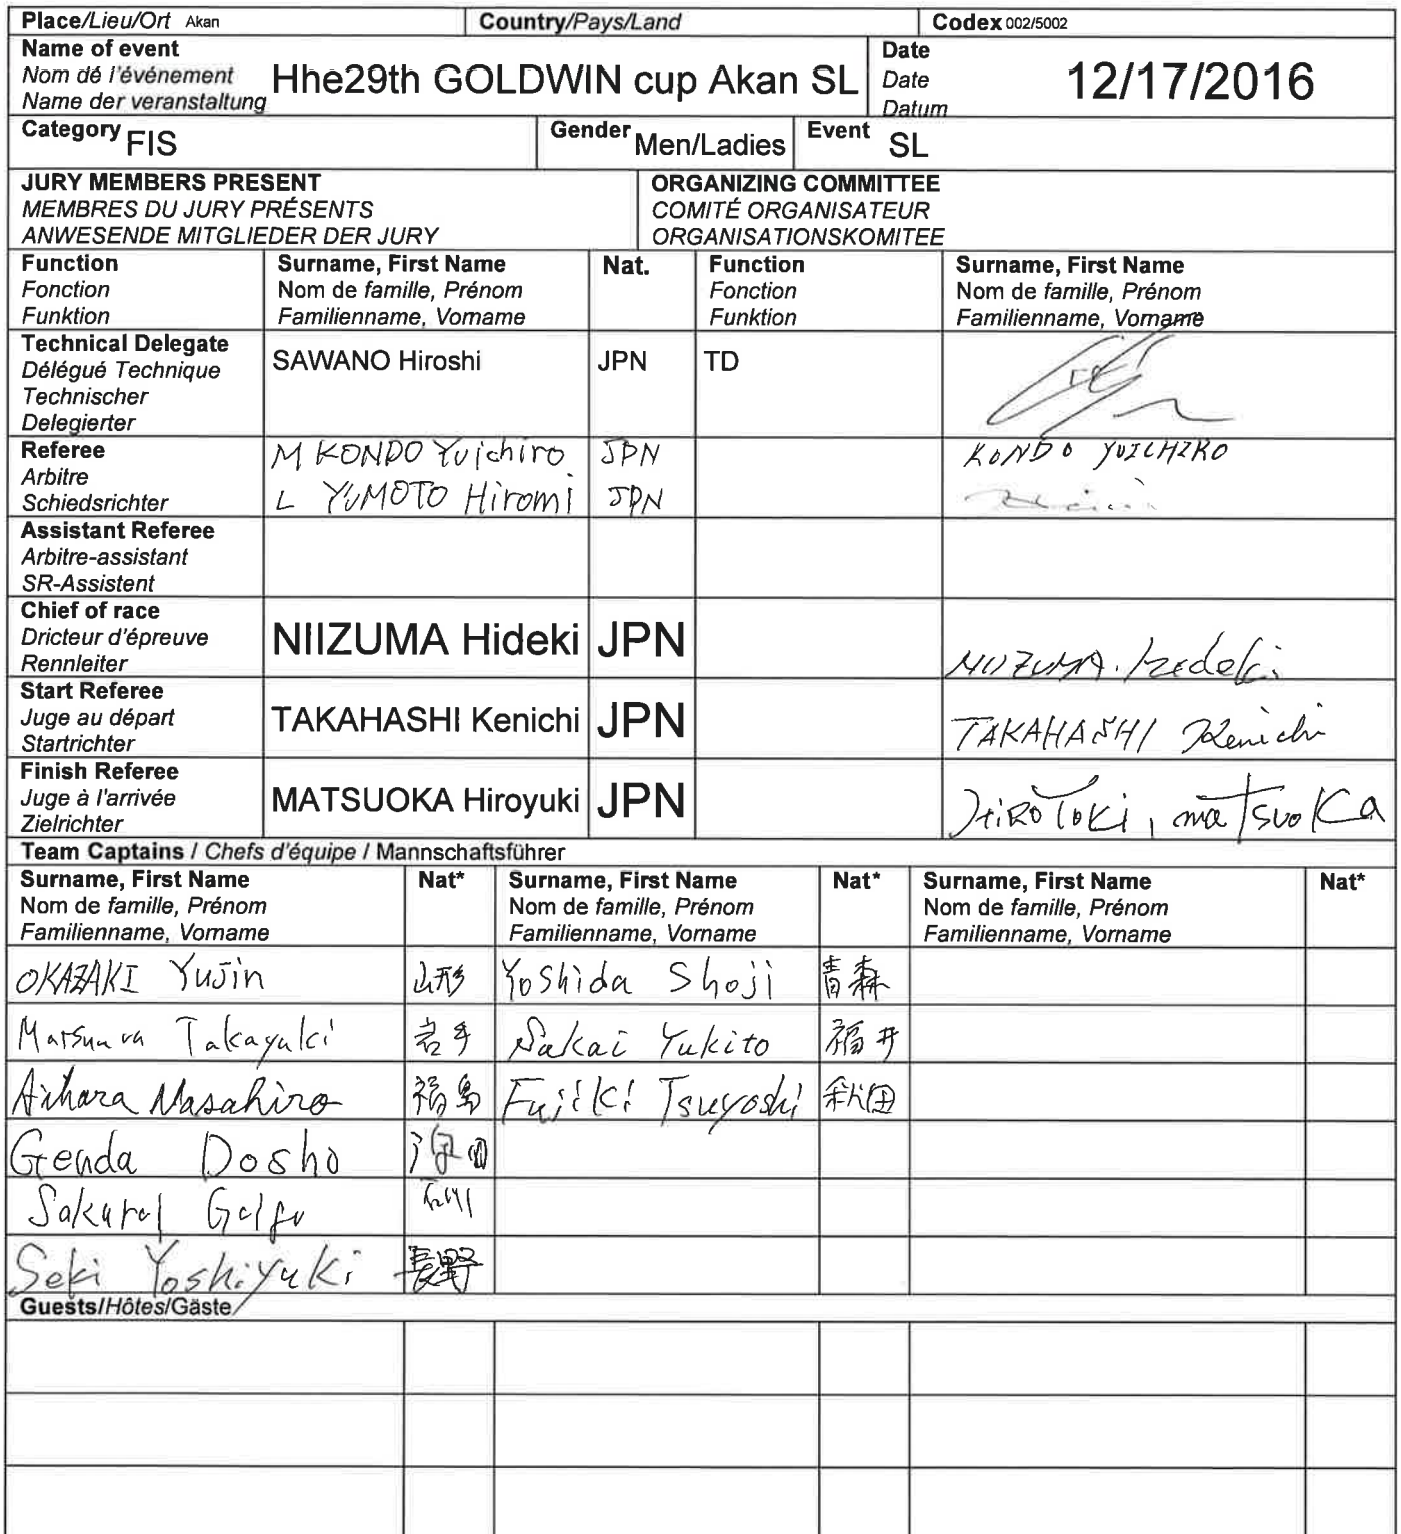 Place/Lieu/Ort Akan Country/Pays/Land Codex 002/5002
Name of event
Nom dé l'événement
Name der veranstaltung
Hhe29th GOLDWIN cup Akan SL
Date
Date
Datum
12/17/2016
Category FIS Gender Men/Ladies Event SL
JURY MEMBERS PRESENT
MEMBRES DU JURY PRÉSENTS
ANWESENDE MITGLIEDER DER JURY
ORGANIZING COMMITTEE
COMITÉ ORGANISATEUR
ORGANISATIONSKOMITEE
Function
Fonction
Funktion
Surname, First Name
Nom de famille, Prénom
Familienname, Vorname
Nat.
Function
Fonction
Funktion
Surname, First Name
Nom de famille, Prénom
Familienname, Vorname
Technical Delegate
Délégué Technique
Technischer
Delegierter
SAWANO Hiroshi JPN TD
Referee
Arbitre
Schiedsrichter
M KONDO Yuichiro JPN KONDO YUICHIRO
L YUMOTO Hiromi JPN
Assistant Referee
Arbitre-assistant
SR-Assistent
Chief of race
Dricteur d'épreuve
Rennleiter
NIIZUMA Hideki JPN NIIZUMA. Hideki
Start Referee
Juge au départ
Startrichter
TAKAHASHI Kenichi JPN TAKAHASHI Kenichi
Finish Referee
Juge à l'arrivée
Zielrichter
MATSUOKA Hiroyuki JPN matsuoka
Team Captains / Chefs d'équipe / Mannschaftsführer
Surname, First Name
Nom de famille, Prénom
Familienname, Vorname
Nat*
Surname, First Name
Nom de famille, Prénom
Familienname, Vorname
Nat*
Surname, First Name
Nom de famille, Prénom
Familienname, Vorname
Nat*
OKAZAKI Yujin 山形 Yoshida Shoji 青森
Takayuki 岩手 Sakai Yukito 福井
Aihara Masahiro 福島 Fujiki Tsuyoshi 秋田
Genda Dosho
Sakurai 石川
Seki Yoshiyuki 長野
Guests/Hôtes/Gäste